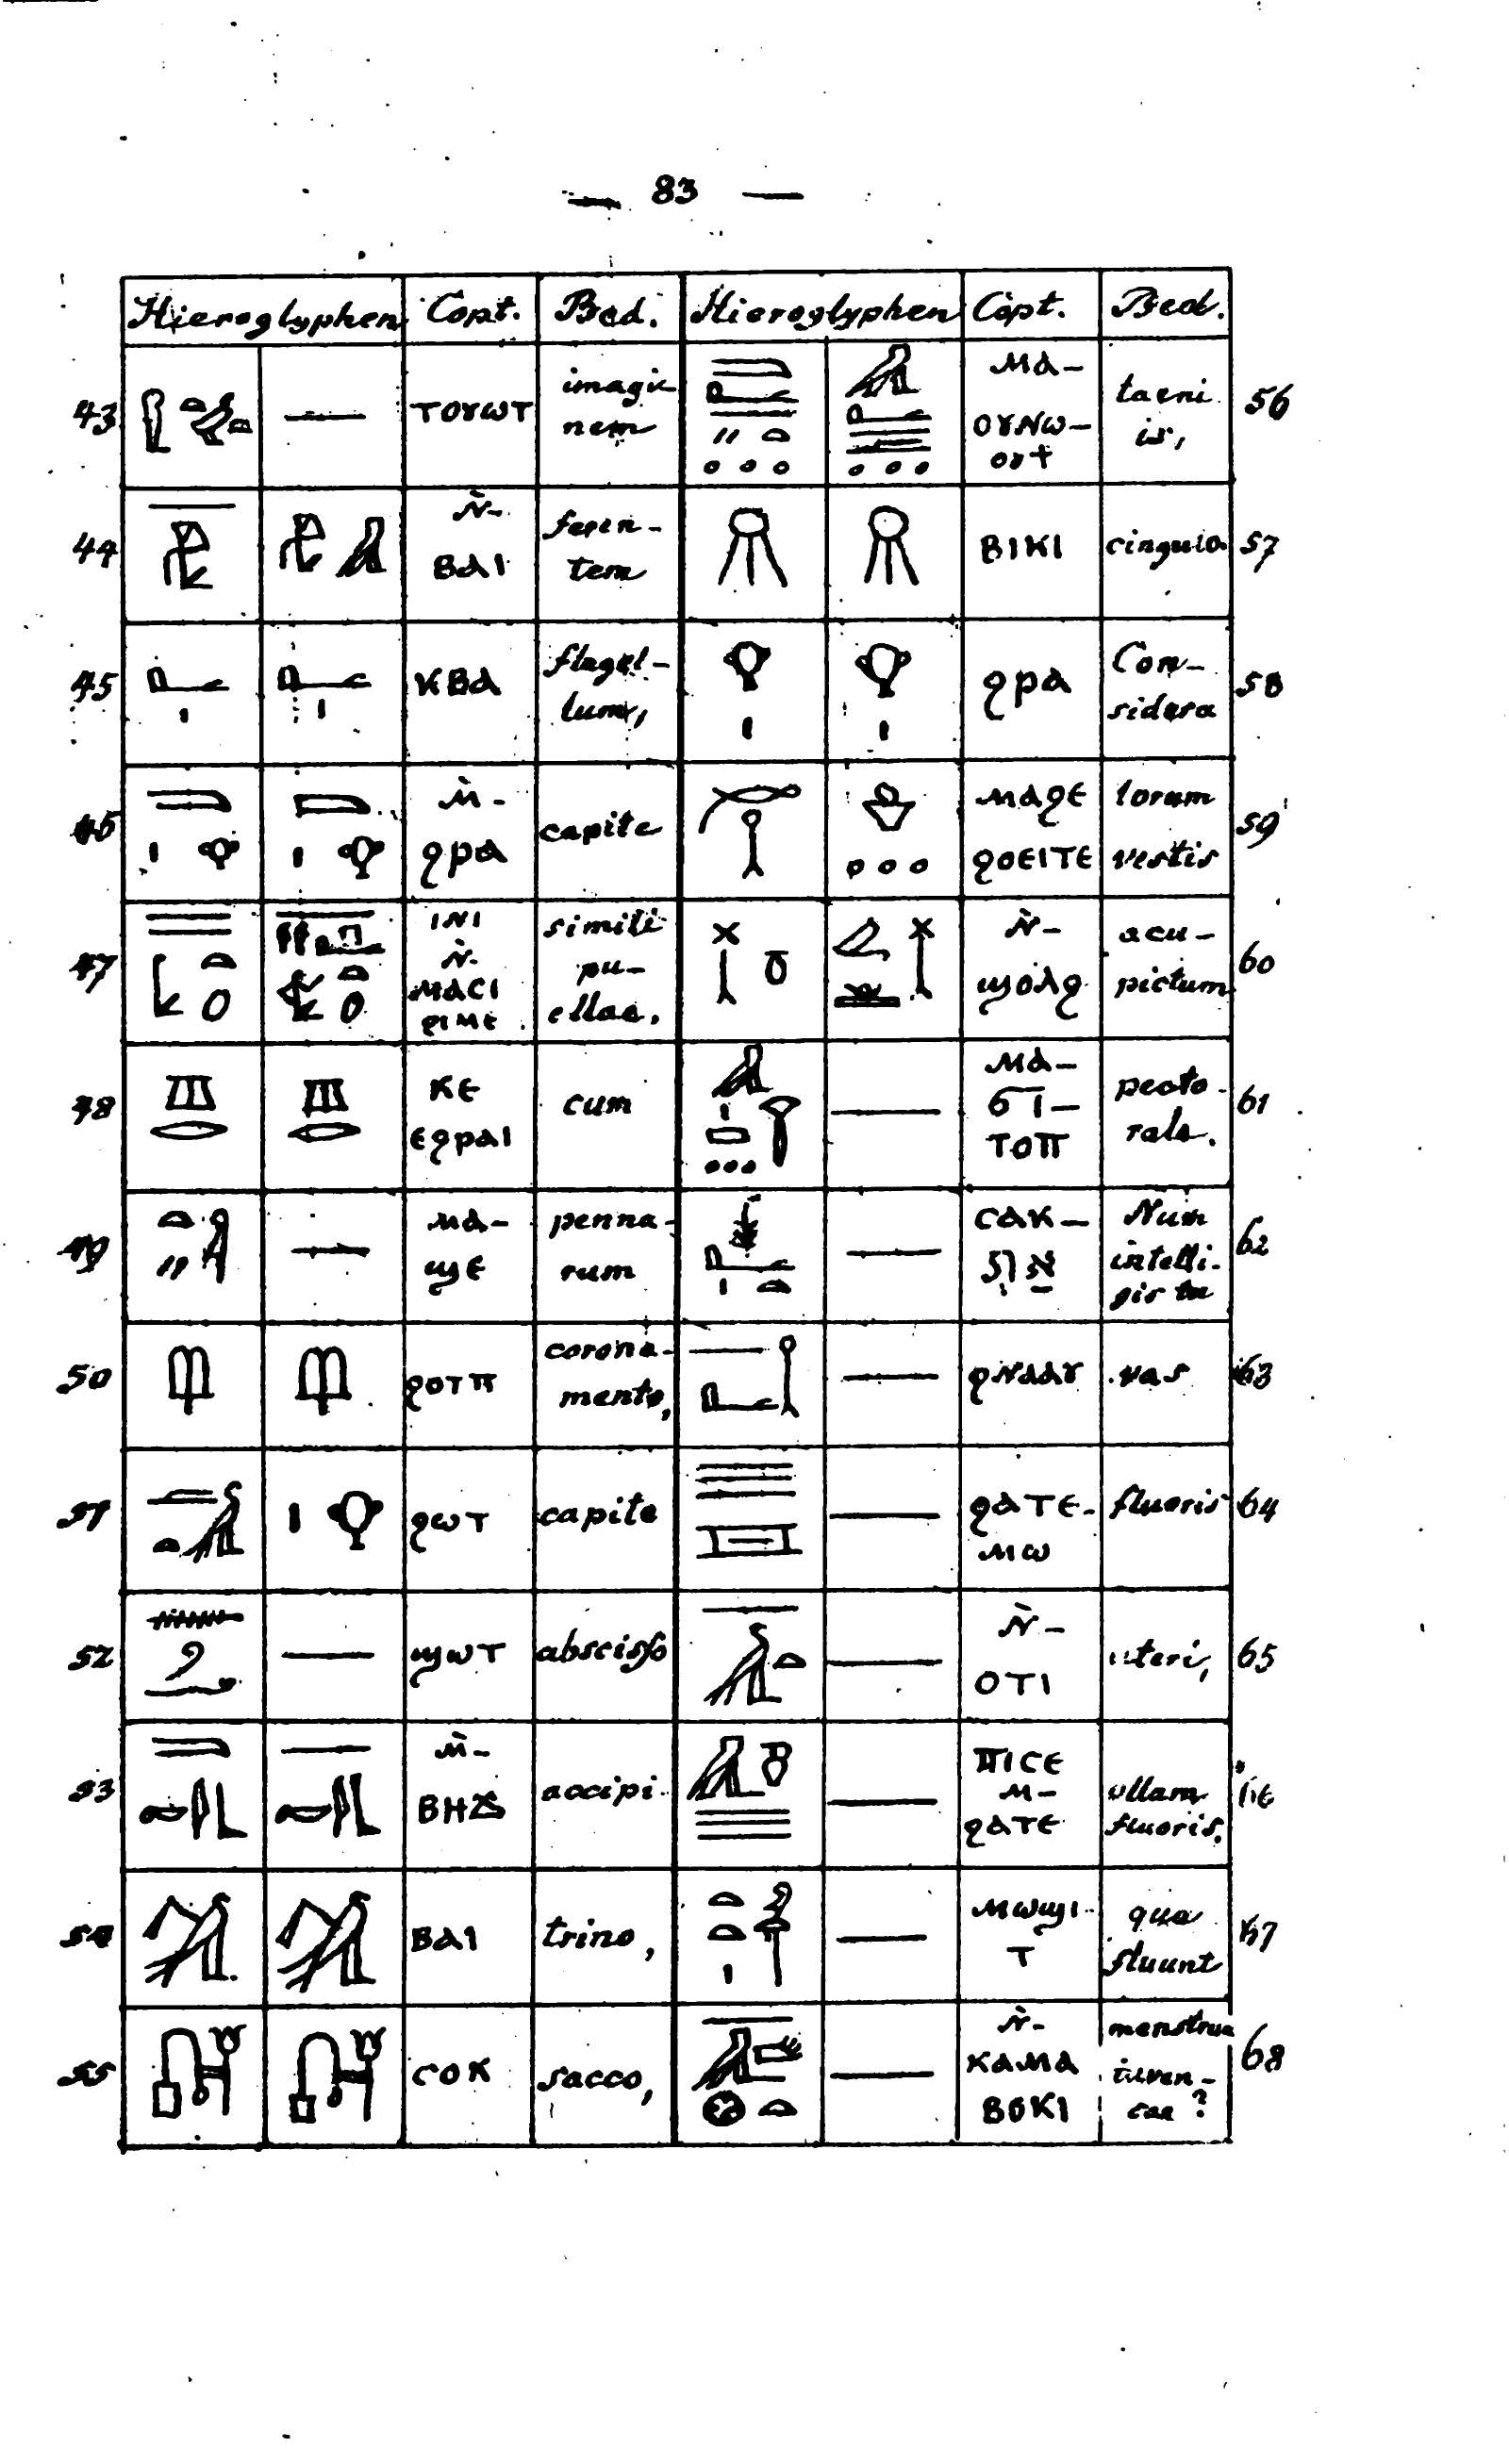 — 83 —
Hieroglyphen Copt. Bed. Hieroglyphen Copt. Bed.
43 ⲧⲟⲩⲱⲧ imagi-
nem
ⲙⲁ-
ⲟⲩⲛⲱ-
ⲟⲩϯ
taeni
is, 56
44 ⲛ̀-
ⲃⲁⲓ
feren-
tem
ⲃⲓⲕⲓ cingula 57
45 ⲕⲃⲁ flagel-
lum,
ϩⲣⲁ Con-
sidera 58
46 ⲙ̀-
ϩⲣⲁ
capite
ⲙⲁϩⲉ
ϩⲟⲉⲓⲧⲉ
lorum
vestis 59
47 ⲓⲛⲓ
ⲛ̀-
ⲙⲁⲥⲓ
ϩⲓⲙⲉ
simili
pu-
ellae.
ⲛ̀-
ϣⲟⲗϩ
acu-
pictum 60
48 ⲕⲉ
ⲉϩⲣⲁⲓ
cum
ⲙⲁ-
ϭⲓ-
ⲧⲟⲡ
pecto-
rale. 61
49 ⲙⲁ-
ϣⲉ
penna-
rum
ⲥⲁⲕ-
Num
intelli-
gis tu 62
50 ϩⲟⲧⲡ corona-
mento,
ϩⲛⲁⲁⲩ vas 63
51 ϩⲱⲧ capite
ϩⲁⲧⲉ-
ⲙⲱ
fluoris 64
52 ϣⲱⲧ abscisso
ⲛ̀-
ⲟⲧⲓ
uteri, 65
53 ⲙ̀-
ⲃⲏϫ
accipi-
ⲡⲓⲥⲉ
ⲙ-
ϩⲁⲧⲉ
ollam
fluoris. 66
54 ⲃⲁⲓ trino,
ⲙⲱϣⲓ
ⲧ
qua
fluunt 67
55 ⲥⲟⲕ sacco,
ⲛ̀-
ⲕⲁⲙⲁ
ⲃⲟⲕⲓ
menstrua
iuven-
cae? 68